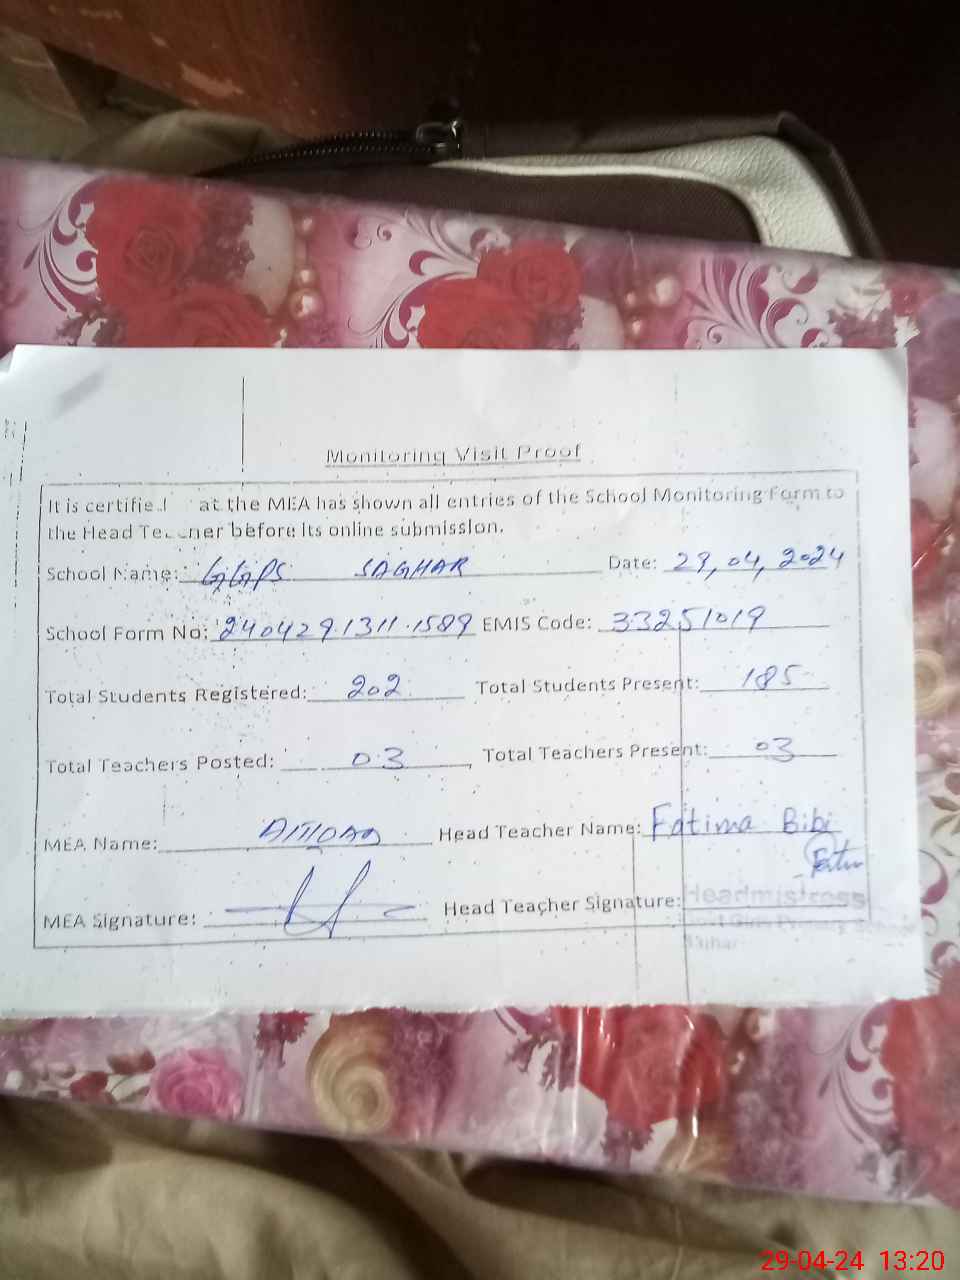 Monitoring Visit Proof
It is certified at the MEA has shown all entries of the School Monitoring Form to
the Head Teacher before its online submission.
School Name: GGPS SAGHAR Date: 29,04,2024
School Form No: 240429.1311.1589 EMIS Code: 33251019
Total Students Registered: 202 Total Students Present: 185
Total Teachers Posted: 03 Total Teachers Present: 03
MEA Name: Head Teacher Name: Fatima Bibi
MEA Signature: Head Teacher Signature: Headmistress
29-04-24 13:20